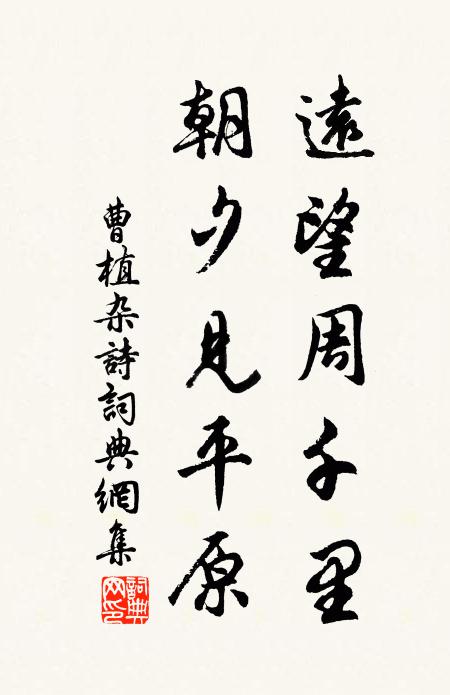 遠望周千里
朝夕見平原
曹植杂詩詞典網集
詞典网印